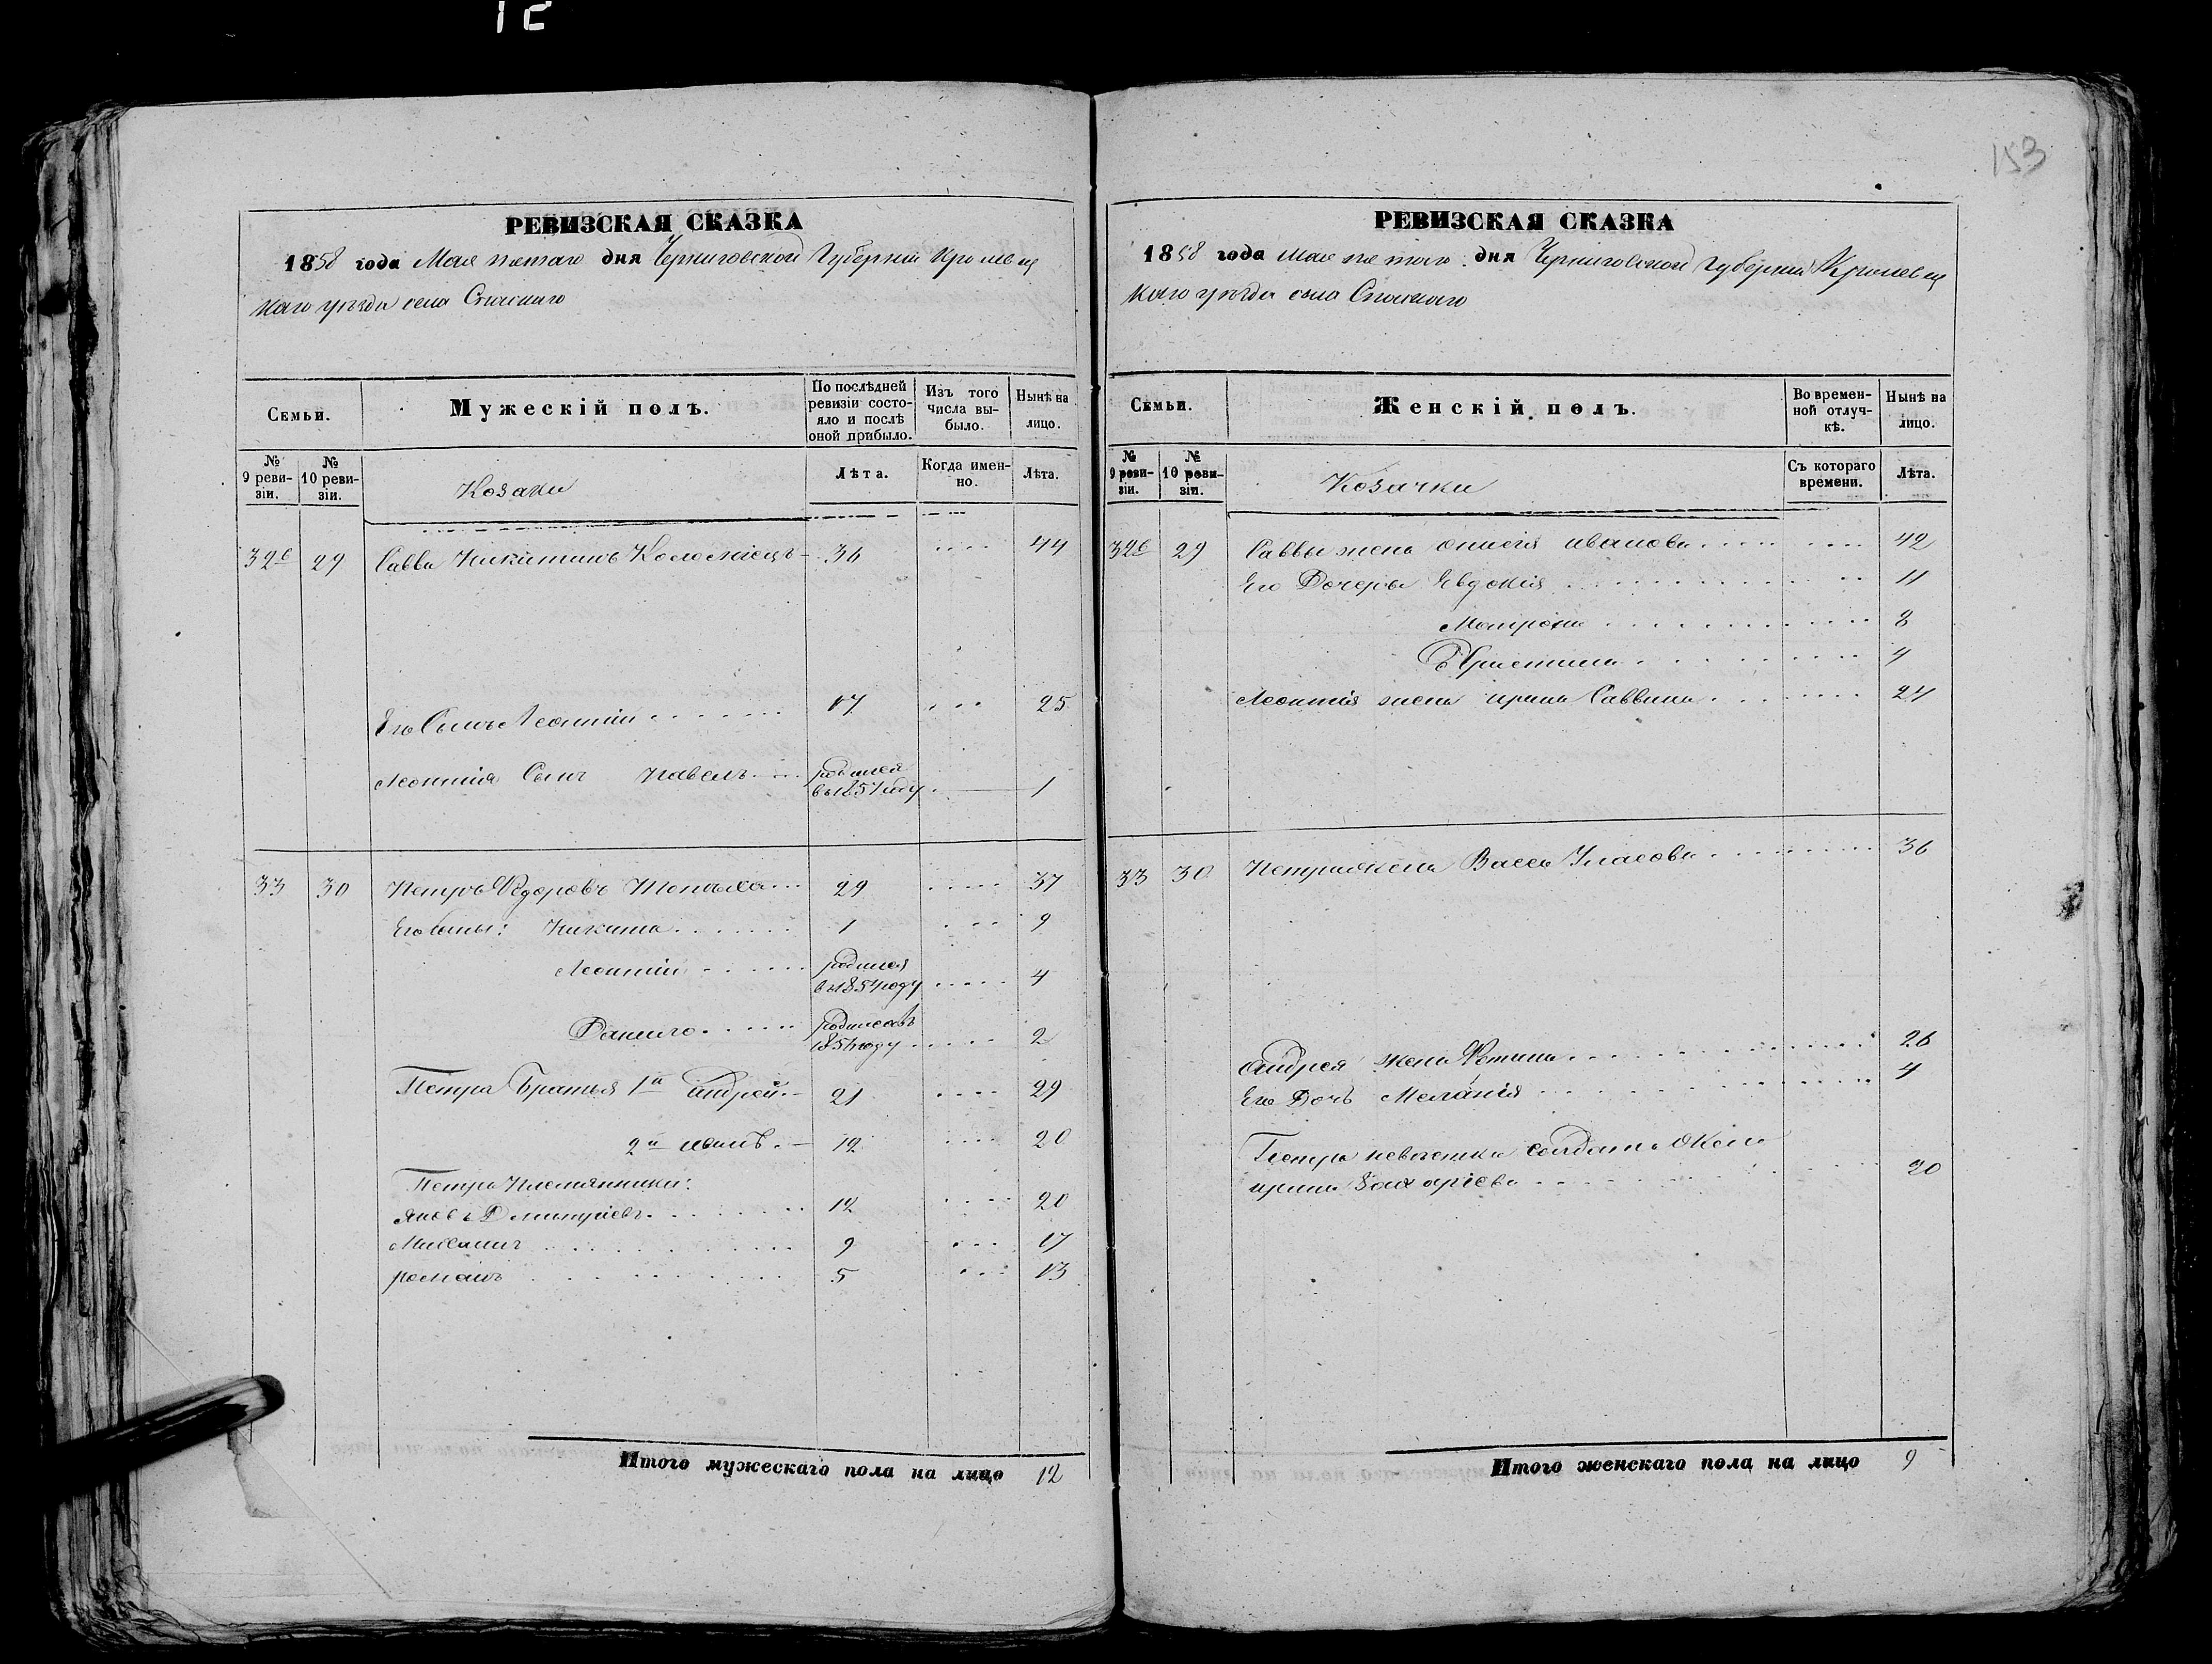 153
РЕВИЗСКАЯ СКАЗКА
1858 года Мая пятаго дня Черниговской Губерніи Кролевец
каго уѣзда села Спаскаго
Семьи.
Мужескій полъ.
По послѣдней
ревизіи состо-
яло и послѣ
оной прибыло.
Изъ того
числа вы-
было.
Нынѣ на
лицо.
№
9 реви-
зіи.
№
10 реви-
зіи.
Козаки
Лѣта.
Когда имен-
но.
Лѣта.
29 Савва Никитинъ Коломіецъ 36 44
Его Сынъ Леонтий 17 25
Леонтія Сынъ Павелъ родился
въ 1857 году 1
33 30 Петръ Федоровъ 29 37
Его сыны: Никита 1 9
Леонтий родился
въ 1854 году 4
Данило родился въ
году 2
Петра Братья 1й андрей 21 29
2й 12 20
Петра Племянники:
Яковъ Дмитріевъ 12 20
Михаилъ 9 17
романъ 5 13
Итого мужескаго пола на лицо 12
РЕВИЗСКАЯ СКАЗКА
1858 года Мая пятаго дня Черниговской Губерніи Кролевец
каго уѣзда села Спаскаго
Семьи.
Женскій полъ.
Во времен-
ной отлуч-
кѣ.
Нынѣ на
лицо.
№
9 реви-
зіи.
№
10 реви-
зіи.
Козачки
Съ котораго
времени.
Лѣта.
29 Саввы жена иванова 42
Его Дочеры Евдокія 11
Матрона 8
Христина 4
Леонтія жена ирина Саввина 24
33 30 Петра жена Васса Власова 36
андрея жена Фотина 26
Его Дочь Меланія 4
Петра невестка солдатка
ирина Захаріева 20
Итого женскаго пола на лицо 9